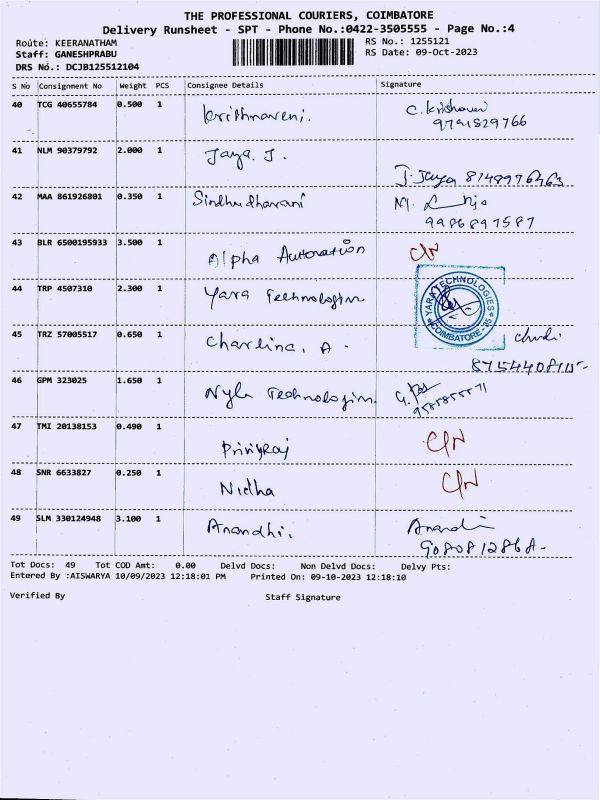 THE PROFESSIONAL COURIERS, COIMBATORE
Delivery Runsheet - SPT - Phone No.:0422-3505555 - Page No.:4
Route: KEERANATHAM
Staff: GANESHPRABU
DRS No.: DCJB125512104
RS No.: 1255121
RS Date: 09-Oct-2023
S No Consignment No Weight PCS Consignee Details Signature
40 TCG 40655784 0.500 1 Krithnaveni. C. Krishnaveni
9791529766
41 NLM 90379792 2.000 1 Jaya. J.
J. Jaya 8148976463
42 MAA 861926801 0.350 1 Sindhudharani M.
9986897587
43 BLR 6500195933 3.500 1 Alpha Automation C/N
44 TRP 4507310 2.300 1 Yara Technologies
YARA TECHNOLOGIES
COIMBATORE - 35
45 TRZ 57005517 0.650 1 Charlina. A.
46 GPM 323025 1.650 1 Nyla Technologies.
47 TMI 20138153 0.490 1 Priniyraj C/N
48 SNR 6633827 0.250 1 Nidha C/N
49 SLM 330124948 3.100 1 Anandhi. Anandi
Tot Docs: 49 Tot COD Amt: 0.00 Delvd Docs: Non Delvd Docs: Delvy Pts:
Entered By :AISWARYA 10/09/2023 12:18:01 PM Printed On: 09-10-2023 12:18:10
Verified By Staff Signature